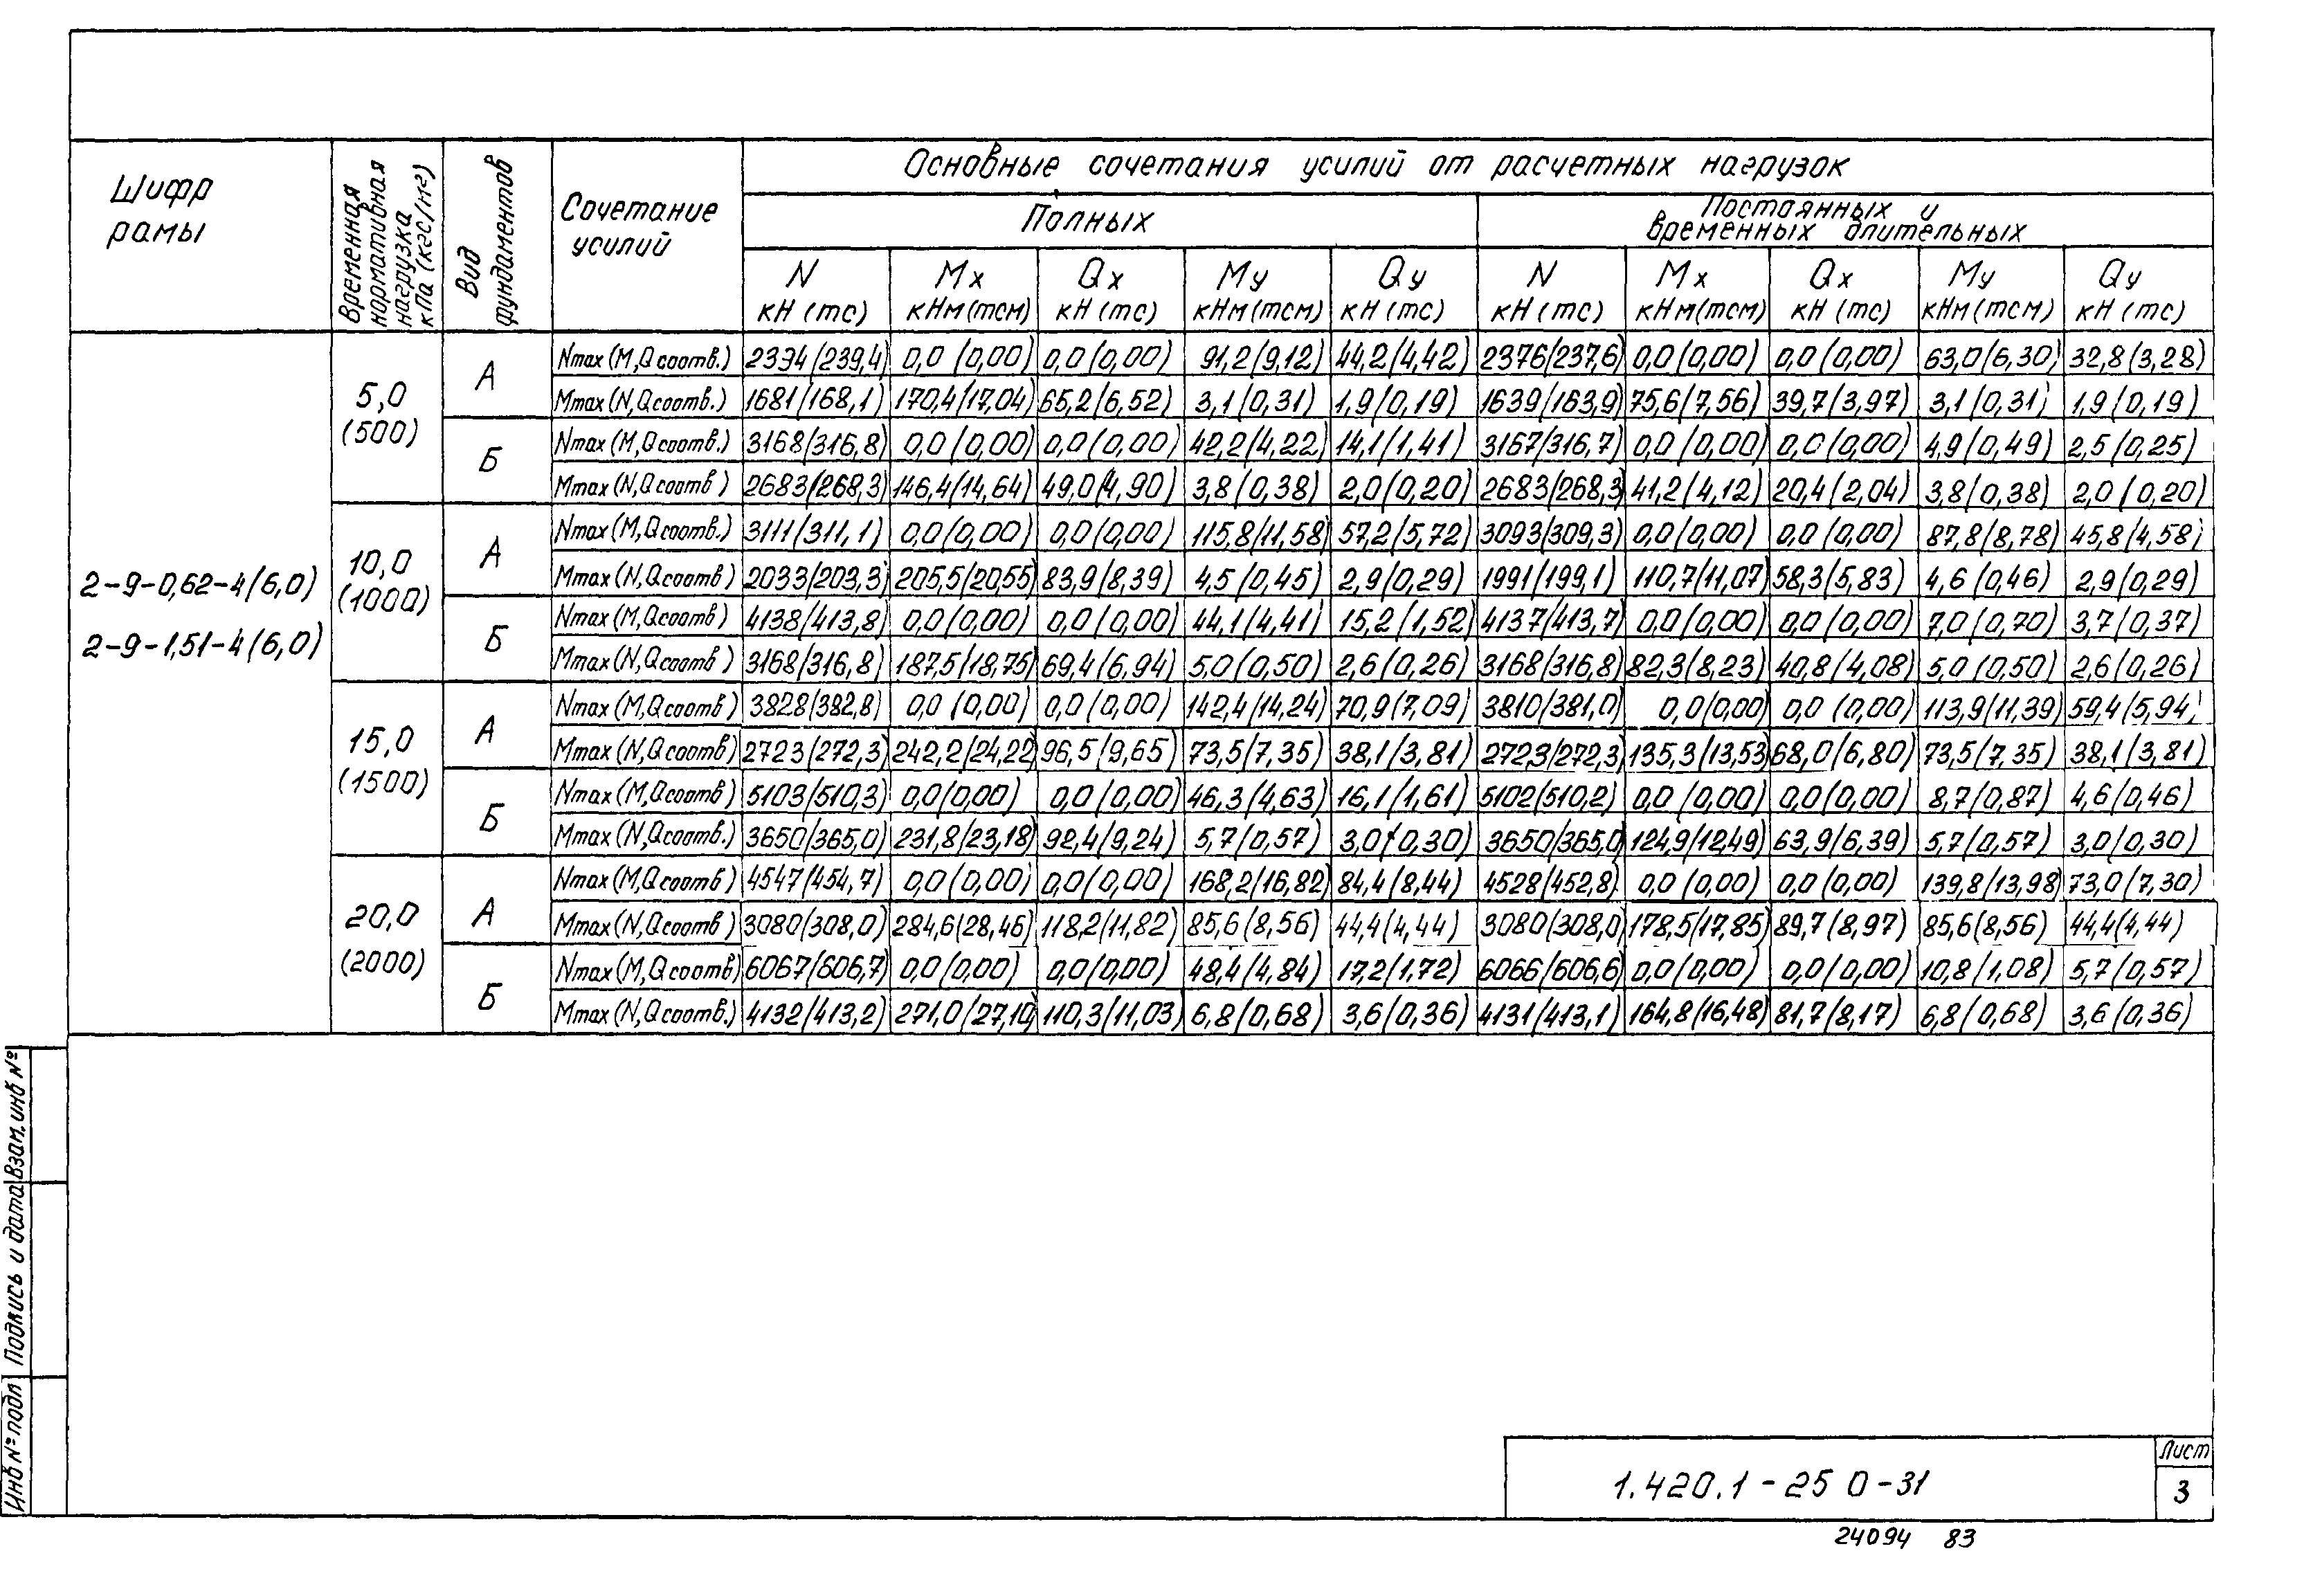 Шифр рамы
Временная нормативная нагрузка кПа (кгс/м²)
Вид фундаментов
Сочетание усилий
Основные сочетания усилий от расчетных нагрузок
Полных
Постоянных и временных длительных
N кН (тс) Mx кНм (тсм) Qx кН (тс) My кНм (тсм) Qy кН (тс) N кН (тс) Mx кНм (тсм) Qx кН (тс) My кНм (тсм) Qy кН (тс)
2-9-0,62-4(6,0)
2-9-1,51-4(6,0)
5,0 (500)
А
Nmax (M,Q соотв.) 2394(239,4) 0,0 (0,00) 0,0 (0,00) 91,2(9,12) 44,2(4,42) 2376(237,6) 0,0(0,00) 0,0 (0,00) 63,0(6,30) 32,8(3,28)
Mmax (N,Q соотв.) 1681(168,1) 170,4(17,04) 65,2(6,52) 3,1(0,31) 1,9(0,19) 1639(163,9) 75,6(7,56) 39,7(3,97) 3,1(0,31) 1,9(0,19)
Б
Nmax (M,Q соотв.) 3168(316,8) 0,0 (0,00) 0,0(0,00) 42,2(4,22) 14,1(1,41) 3167(316,7) 0,0 (0,00) 0,0(0,00) 4,9(0,49) 2,5(0,25)
Mmax (N,Q соотв) 2683(268,3) 146,4(14,64) 49,0(4,90) 3,8(0,38) 2,0(0,20) 2683(268,3) 41,2(4,12) 20,4(2,04) 3,8(0,38) 2,0(0,20)
10,0 (1000)
А
Nmax (M,Q соотв.) 3111(311,1) 0,0(0,00) 0,0(0,00) 115,8(11,58) 57,2(5,72) 3093(309,3) 0,0(0,00) 0,0 (0,00) 87,8(8,78) 45,8(4,58)
Mmax (N,Q соотв) 2033(203,3) 205,5(20,55) 83,9(8,39) 4,5(0,45) 2,9(0,29) 1991(199,1) 110,7(11,07) 58,3(5,83) 4,6(0,46) 2,9(0,29)
Б
Nmax (M,Q соотв) 4138(413,8) 0,0(0,00) 0,0 (0,00) 44,1(4,41) 15,2(1,52) 4137(413,7) 0,0(0,00) 0,0(0,00) 7,0(0,70) 3,7(0,37)
Mmax (N,Q соотв) 3168(316,8) 187,5(18,75) 69,4(6,94) 5,0(0,50) 2,6(0,26) 3168(316,8) 82,3(8,23) 40,8(4,08) 5,0(0,50) 2,6(0,26)
15,0 (1500)
А
Nmax (M,Q соотв) 3828(382,8) 0,0 (0,00) 0,0 (0,00) 142,4(14,24) 70,9(7,09) 3810(381,0) 0,0(0,00) 0,0 (0,00) 113,9(11,39) 59,4(5,94)
Mmax (N,Q соотв) 2723(272,3) 242,2(24,22) 96,5(9,65) 73,5(7,35) 38,1(3,81) 2723(272,3) 135,3(13,53) 68,0(6,80) 73,5(7,35) 38,1(3,81)
Б
Nmax (M,Q соотв) 5103(510,3) 0,0(0,00) 0,0 (0,00) 46,3(4,63) 16,1(1,61) 5102(510,2) 0,0 (0,00) 0,0(0,00) 8,7(0,87) 4,6(0,46)
Mmax (N,Q соотв.) 3650(365,0) 231,8(23,18) 92,4(9,24) 5,7(0,57) 3,0(0,30) 3650(365,0) 124,9(12,49) 63,9(6,39) 5,7(0,57) 3,0(0,30)
20,0 (2000)
А
Nmax (M,Q соотв) 4547(454,7) 0,0 (0,00) 0,0(0,00) 168,2(16,82) 84,4(8,44) 4528(452,8) 0,0 (0,00) 0,0 (0,00) 139,8(13,98) 73,0(7,30)
Mmax (N,Q соотв) 3080(308,0) 284,6(28,46) 118,2(11,82) 85,6(8,56) 44,4(4,44) 3080(308,0) 178,5(17,85) 89,7(8,97) 85,6(8,56) 44,4(4,44)
Б
Nmax (M,Q соотв) 6067(606,7) 0,0(0,00) 0,0(0,00) 48,4(4,84) 17,2(1,72) 6066(606,6) 0,0(0,00) 0,0(0,00) 10,8(1,08) 5,7(0,57)
Mmax (N,Q соотв.) 4132(413,2) 271,0(27,10) 110,3(11,03) 6,8(0,68) 3,6(0,36) 4131(413,1) 164,8(16,48) 81,7(8,17) 6,8(0,68) 3,6(0,36)
Взам. инв №
Подпись и дата
Инв № подл
1.420.1-25 0-31
Лист
3
24094 83